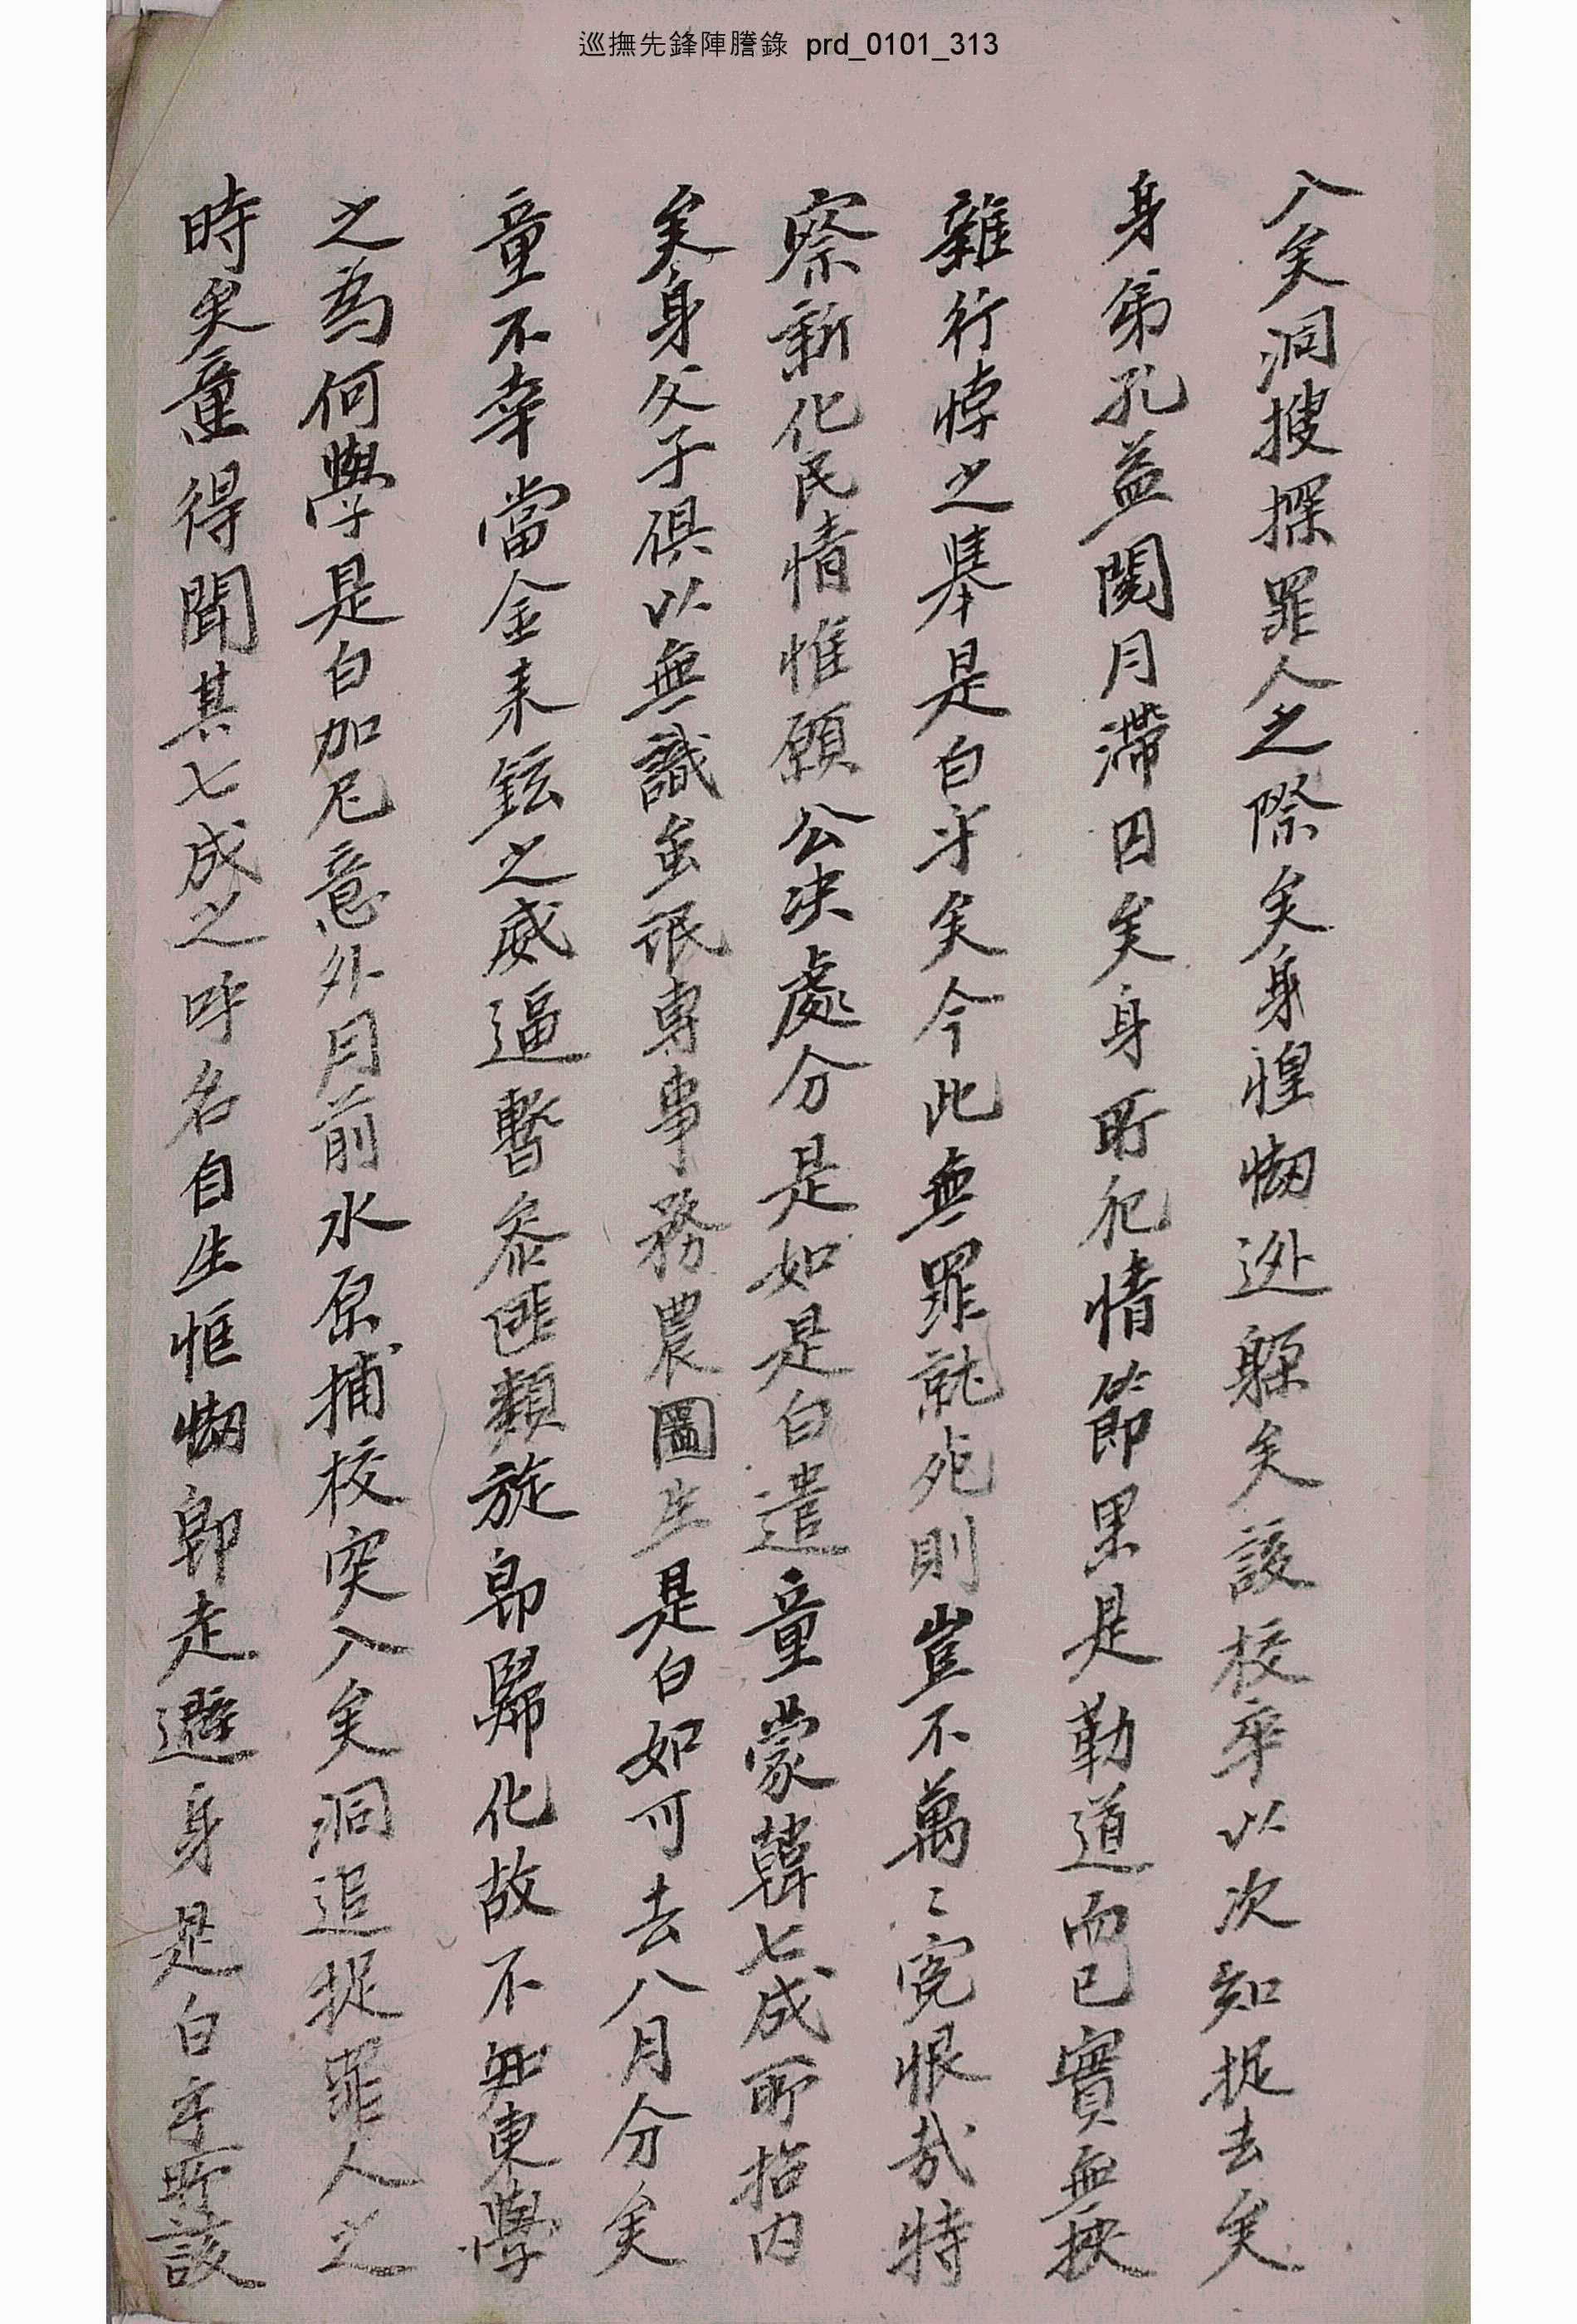 巡撫先鋒陣謄錄 prd_0101_313
入矣洞搜探罪人之際矣身惶㥘逃躱矣該校卒以次知捉去矣
身弟孔益閱月滯囚矣身所犯情節果是勒道而已實無挾
雜行悖之擧是白乎矣今此無罪就死則豈不萬〻寃恨哉特
察新化民情惟願公决處分是如是白遣童蒙韓七成所招內
矣身父子俱以無識蚩氓專事務農圖生是白如可去八月分矣
童不幸當金來鉉之威逼暫參匪類旋卽歸化故不知東學
之爲何學是白加尼意外月前水原捕校突入矣洞追捉罪人之
時矣童得聞其七成之呼名自生恇㥘卽走避身是白乎所該